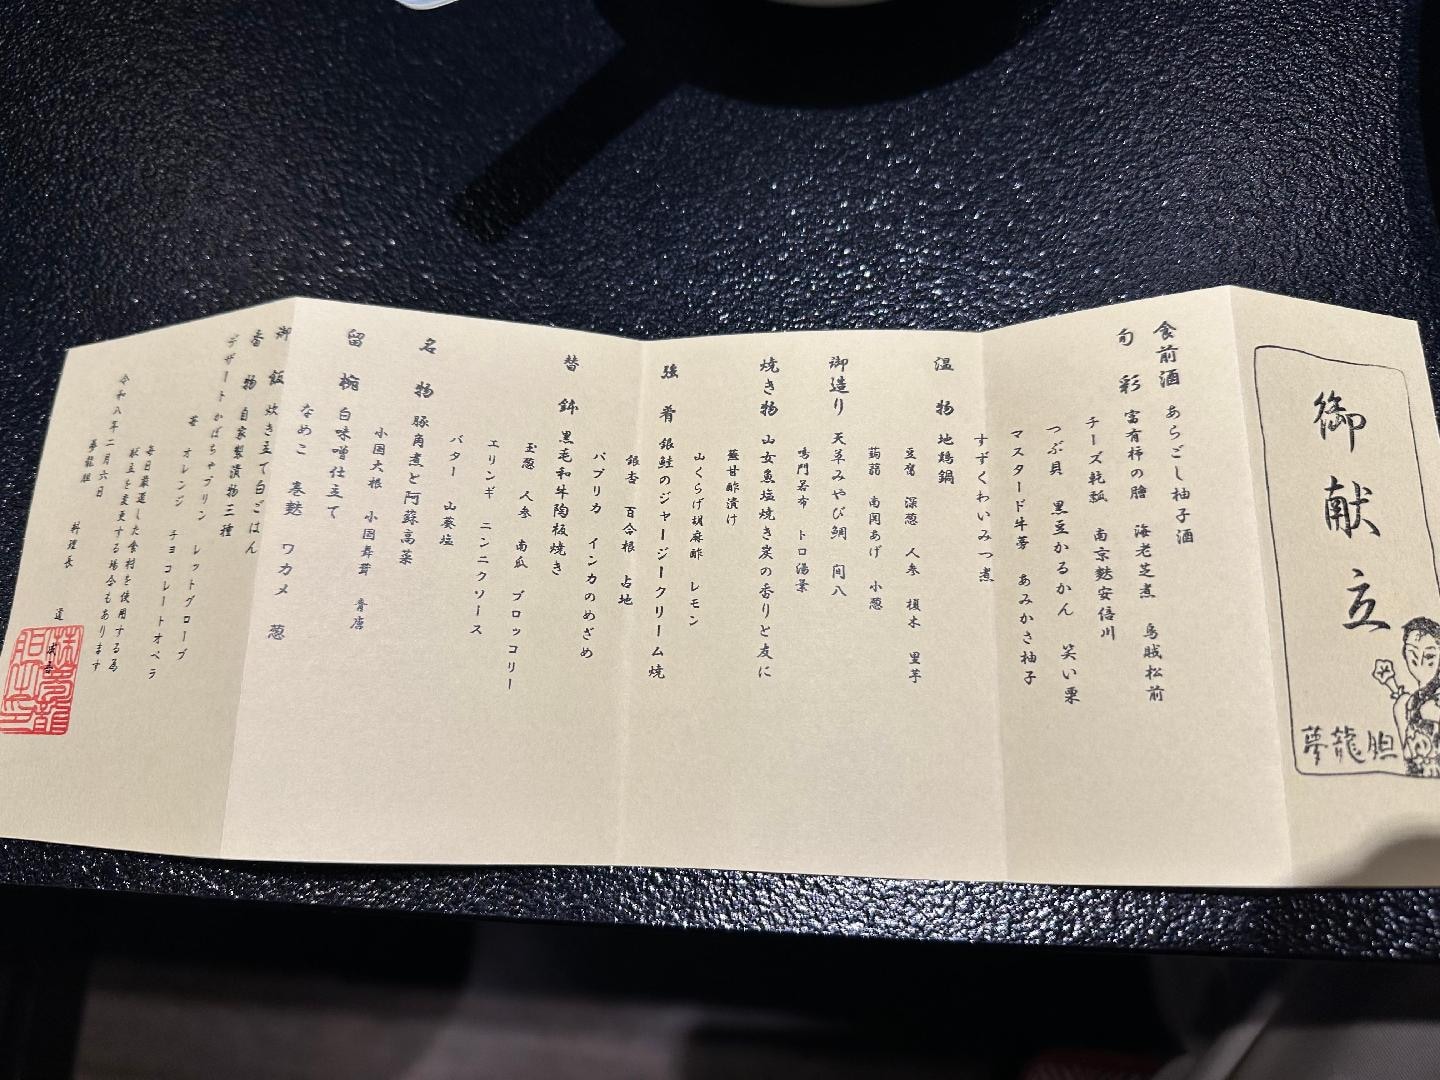 御献立
夢龍胆
食前酒 あらごし柚子酒
旬彩 富有柿の膾 海老芝煮 烏賊松前
チーズ乾瓢 南京麩安倍川
つぶ貝 黒豆かるかん 笑い栗
マスタード牛蒡 あみかさ柚子
すずくわいみつ煮
温物 地鶏鍋
豆腐 深葱 人参 榎木 里芋
蒟蒻 南関あげ 小葱
御造り 天草みやび鯛 間八
鳴門若布 トロ湯葉
焼き物 山女魚塩焼き炭の香りと友に
蕪甘酢漬け
山くらげ胡麻酢 レモン
強肴 銀鮭のジャージークリーム焼
銀杏 百合根 占地
パプリカ インカのめざめ
替鉢 黒毛和牛陶板焼き
玉葱 人参 南瓜 ブロッコリー
エリンギ ニンニクソース
バター 山葵塩
名物 豚角煮と阿蘇高菜
小国大根 小国舞茸 青唐
留椀 白味噌仕立て
なめこ 巻麩 ワカメ 葱
御飯 炊き立て白ごはん
香物 自家製漬物三種
デザート かぼちゃプリン レッドグローブ
苺 オレンジ チョコレートオペラ
毎日厳選した食材を使用する為
献立を変更する場合もあります
令和八年二月六日
夢龍胆 料理長